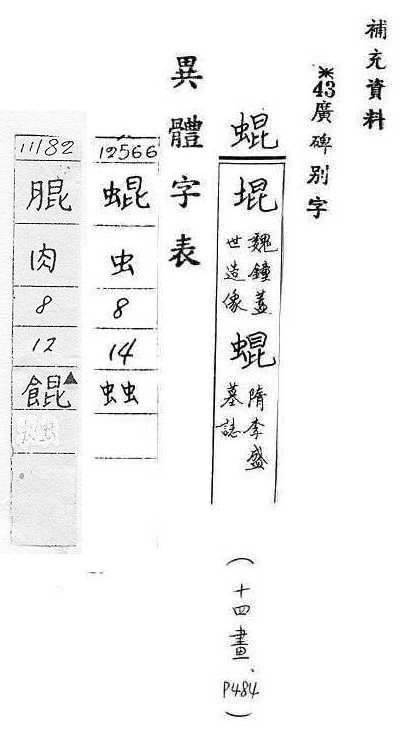 補充資料
※43廣碑別字
蜫
堒
魏鐘蓋
世造像
蜫
隋李盛
墓誌
(十四畫、P484)
異體字表
12566
蜫
虫
8
14
䖵
11182
䐊
肉
8
12
餛▲